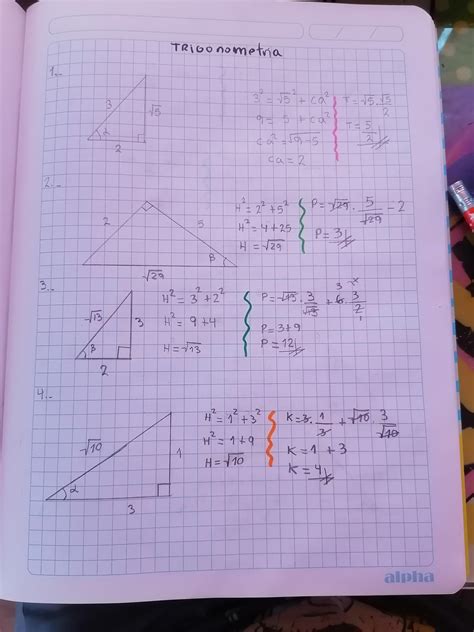 TRIGONOMETRIA
1.-
3
√5
2
2
3² = √5² + ca²
9 = 5 + ca²
ca² = √9-5
ca = 2
T = √5 . √5/2
T = 5/2
2.-
2
5
B
√29
H² = 2² + 5²
H² = 4 + 25
H = √29
P = √29 . 5/√29 - 2
P = 3
3.-
√13
3
B
2
H² = 3² + 2²
H² = 9 + 4
H = √13
P = √13 . 3/√13 + 6 . 3/2
P = 3 + 9
P = 12
4.-
√10
1
2
3
H² = 1² + 3²
H² = 1 + 9
H = √10
K = 3 . 1/3 + √10 . 3/√10
K = 1 + 3
K = 4
alpha